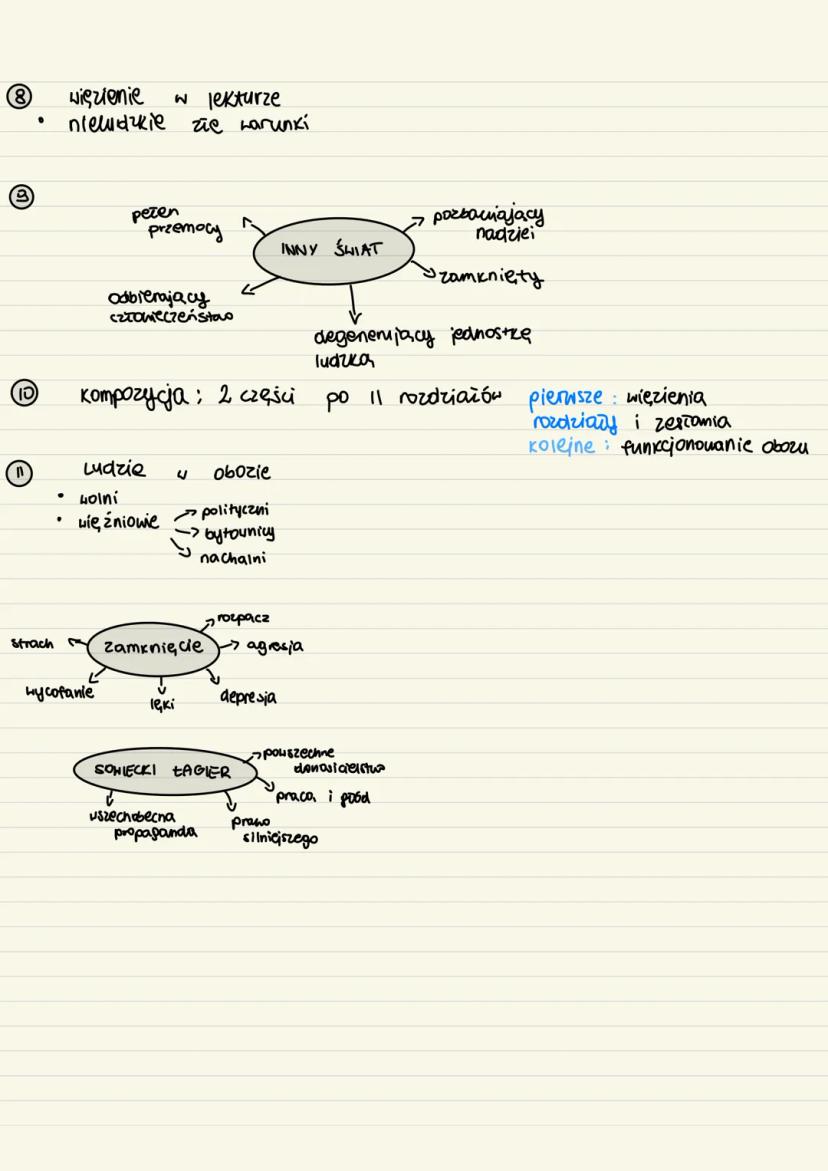 8 więzienie w lekturze
• nieludzkie złe warunki
9
pełen
przemocy
INNY ŚWIAT
pozbawiający
nadziei
zamknięty
odbierający
człowieczeństwo
degenerujący jednostkę
ludzką
10 kompozycja: 2 części po 11 rozdziałów pierwsze: więzienia
rozdziały i zesłania
kolejne: funkcjonowanie obozu
11 Ludzie w obozie
• wolni
• więźniowie → polityczni
→ bytownicy
→ nachalni
zamknięcie
rozpacz
strach
agresja
wycofanie
lęki
depresja
SOWIECKI ŁAGIER
powszechne
donosicielstwo
praca i głód
wszechobecna
propaganda
prawo
silniejszego